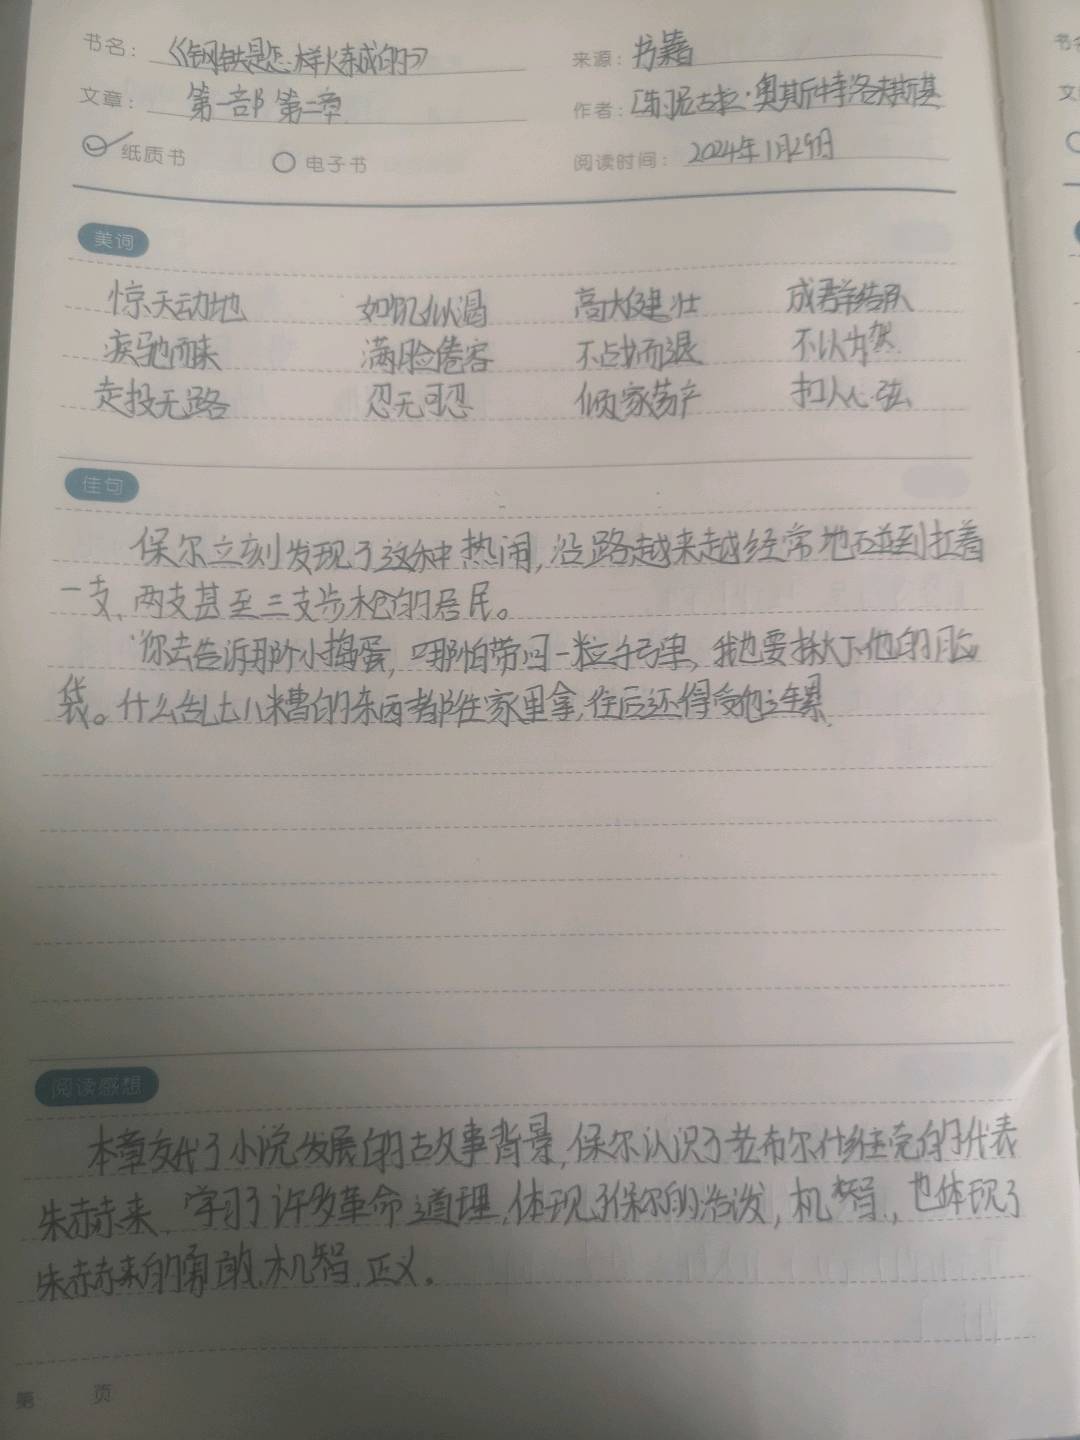 书名：《钢铁是怎样炼成的》 来源：书籍
文章：第一部 第二章 作者：[苏]尼古拉·奥斯特洛夫斯基
纸质书 电子书 阅读时间：2024年1月29日
美词
惊天动地 如饥似渴 高大健壮 成群结队
疾驰而来 满脸倦容 不战而退 不以为然
走投无路 忍无可忍 倾家荡产 扣人心弦
佳句
保尔立刻发现了这种热闹，沿路越来越经常地碰到扛着
一支、两支甚至三支步枪的居民。
你去告诉那个小捣蛋，哪怕带回一粒子弹，我也要揪下他的脑
袋。什么乱七八糟的东西都往家里拿，往后还得受他连累
阅读感想
本章交代了小说发展的故事背景，保尔认识了老布尔什维党的代表
朱赫来，学习了许多革命道理，体现了保尔的活泼，机智，也体现了
朱赫来的勇敢、机智、正义。
第 页
书名
文